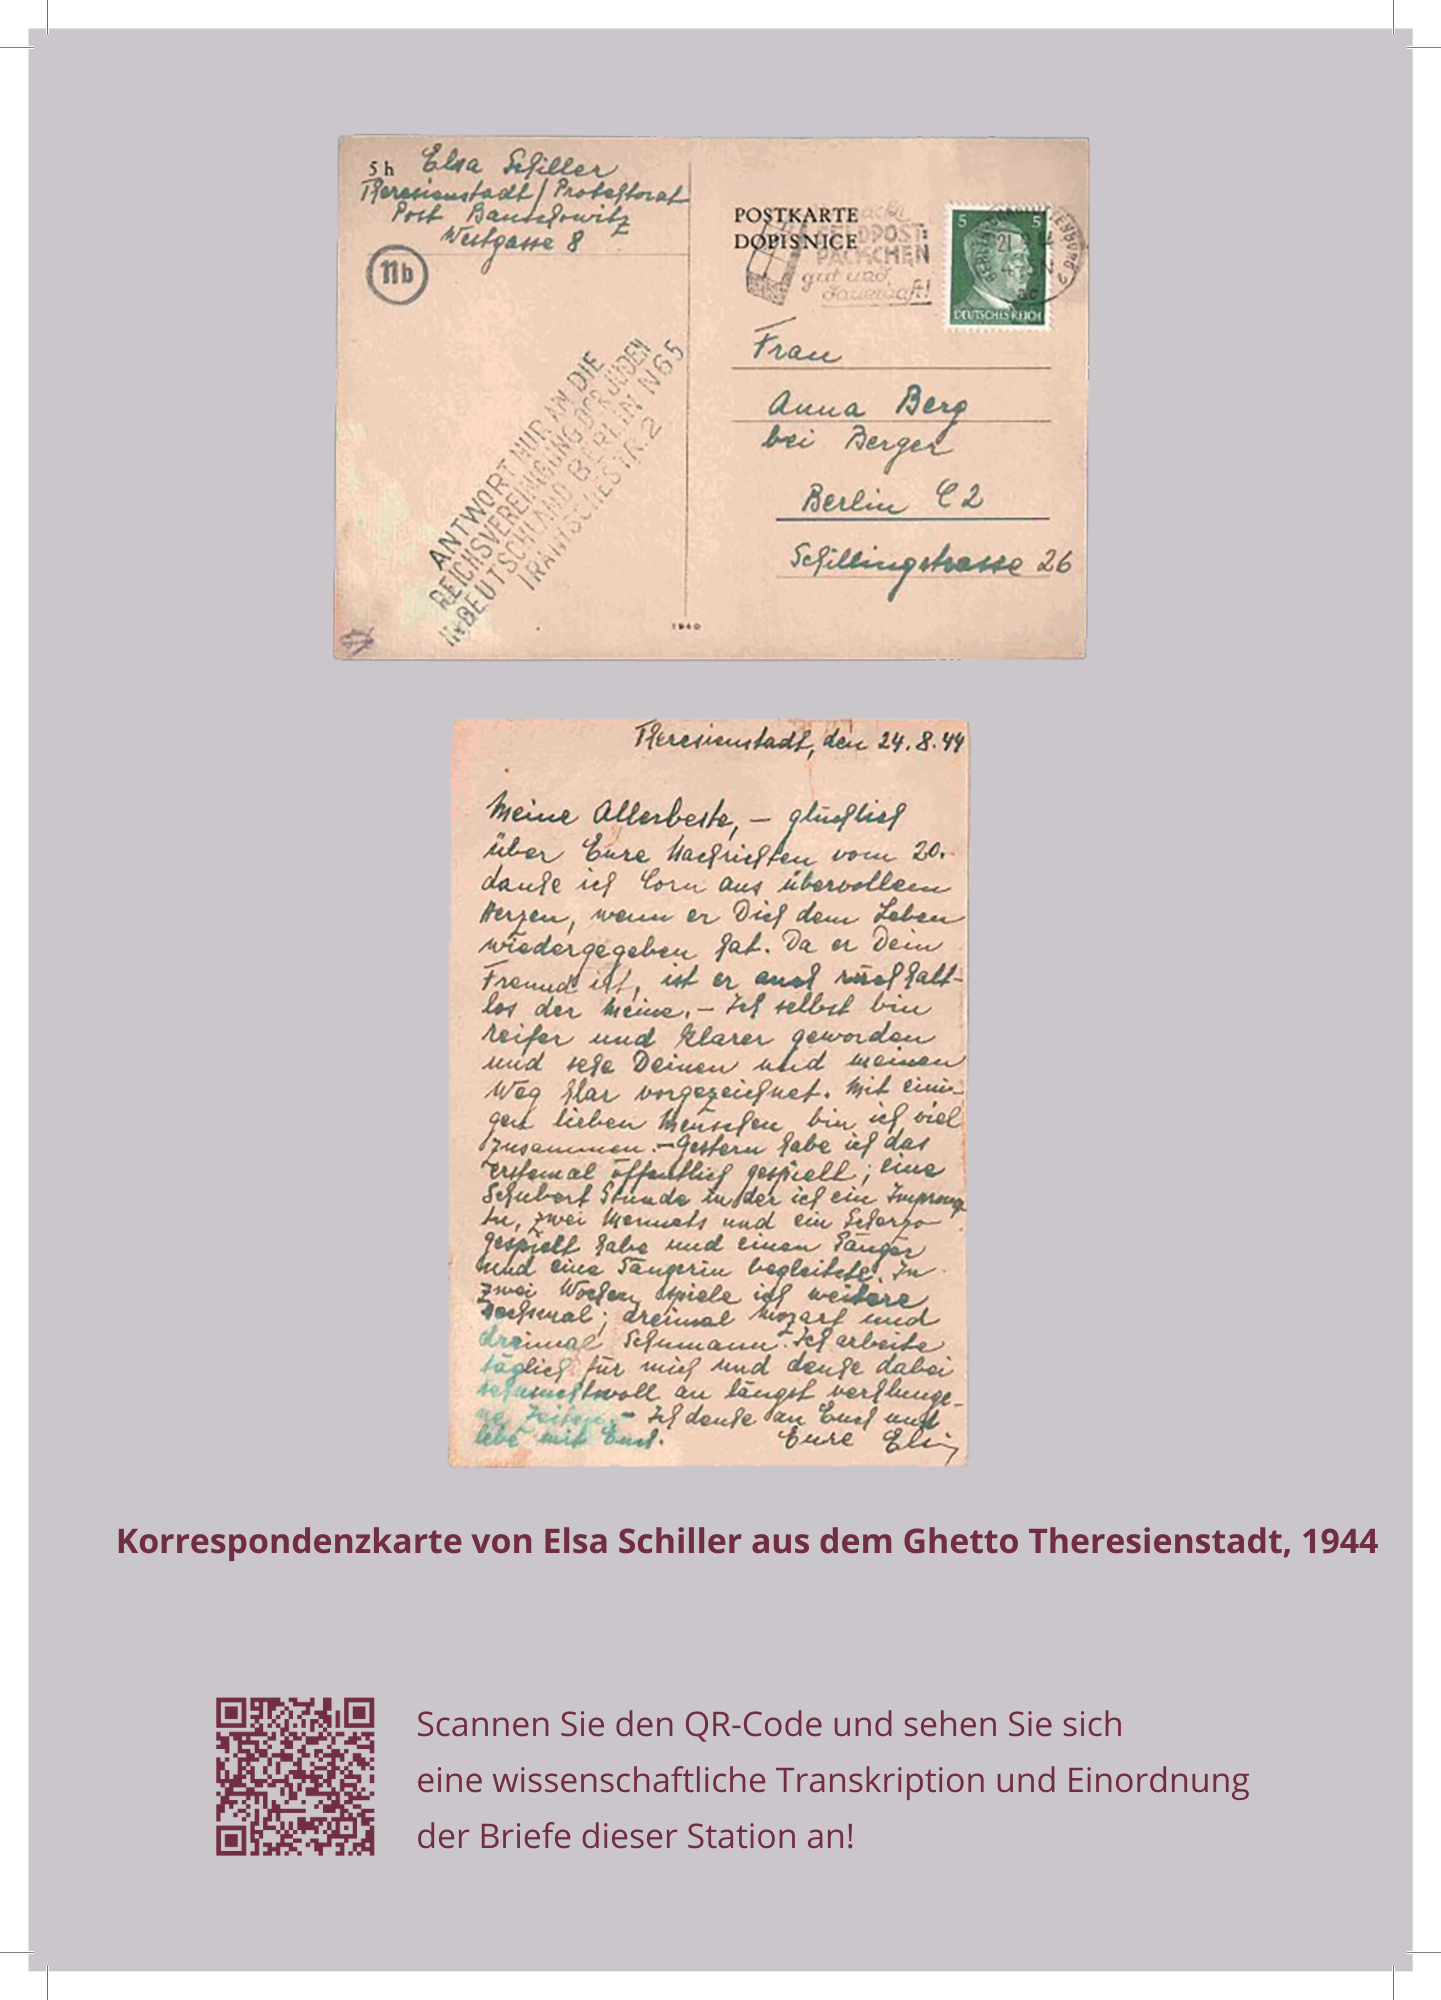 5 h Elsa Schiller
Theresienstadt / Protektorat
Post Bauschowitz
Westgasse 8
11b
ANTWORT NUR AN DIE
REICHSVEREINIGUNG DER JUDEN
IN DEUTSCHLAND BERLIN N65
IRANISCHESTR. 2
1940
POSTKARTE
DOPISNICE
FELDPOST:
PÄCKCHEN
gut und
dauerhaft!
5 5
DEUTSCHES REICH
Frau
Anna Berg
bei Berger
Berlin C2
Schillingstrasse 26
Theresienstadt, den 24.8.44
Meine Allerbeste, – glücklich
über Eure Nachrichten vom 20.
danke ich Corn aus übervollem
Herzen, wenn er Dich dem Leben
wiedergegeben hat. Da er Dein
Freund ist, ist er auch rückhalt-
los der Meine. – Ich selbst bin
reifer und klarer geworden
und sehe Deinen und meinen
Weg klar vorgezeichnet. Mit eini-
gen lieben Menschen bin ich viel
zusammen. – Gestern habe ich das
erstemal öffentlich gespielt; eine
Schubert Stunde in der ich ein Impromp
tu, zwei Menuets und ein Scherzo
gespielt habe und einen Sänger
und eine Sängerin begleitete. In
zwei Wochen spiele ich weitere
sechsmal; dreimal Mozart und
dreimal Schumann. Ich arbeite
täglich für mich und denke dabei
sehnsuchtsvoll an längst verklunge-
ne Zeiten. – Ich denke an Euch und
lebe mit Euch. Eure Elsie
Korrespondenzkarte von Elsa Schiller aus dem Ghetto Theresienstadt, 1944
Scannen Sie den QR-Code und sehen Sie sich
eine wissenschaftliche Transkription und Einordnung
der Briefe dieser Station an!